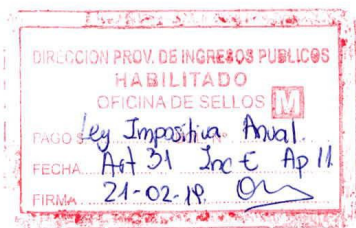 DIRECCION PROV. DE INGRESOS PUBLICOS
HABILITADO
OFICINA DE SELLOS M
PAGO S Ley Impositiva Anual
FECHA Art 31 Inc E Ap 11
FIRMA 21-02-19.